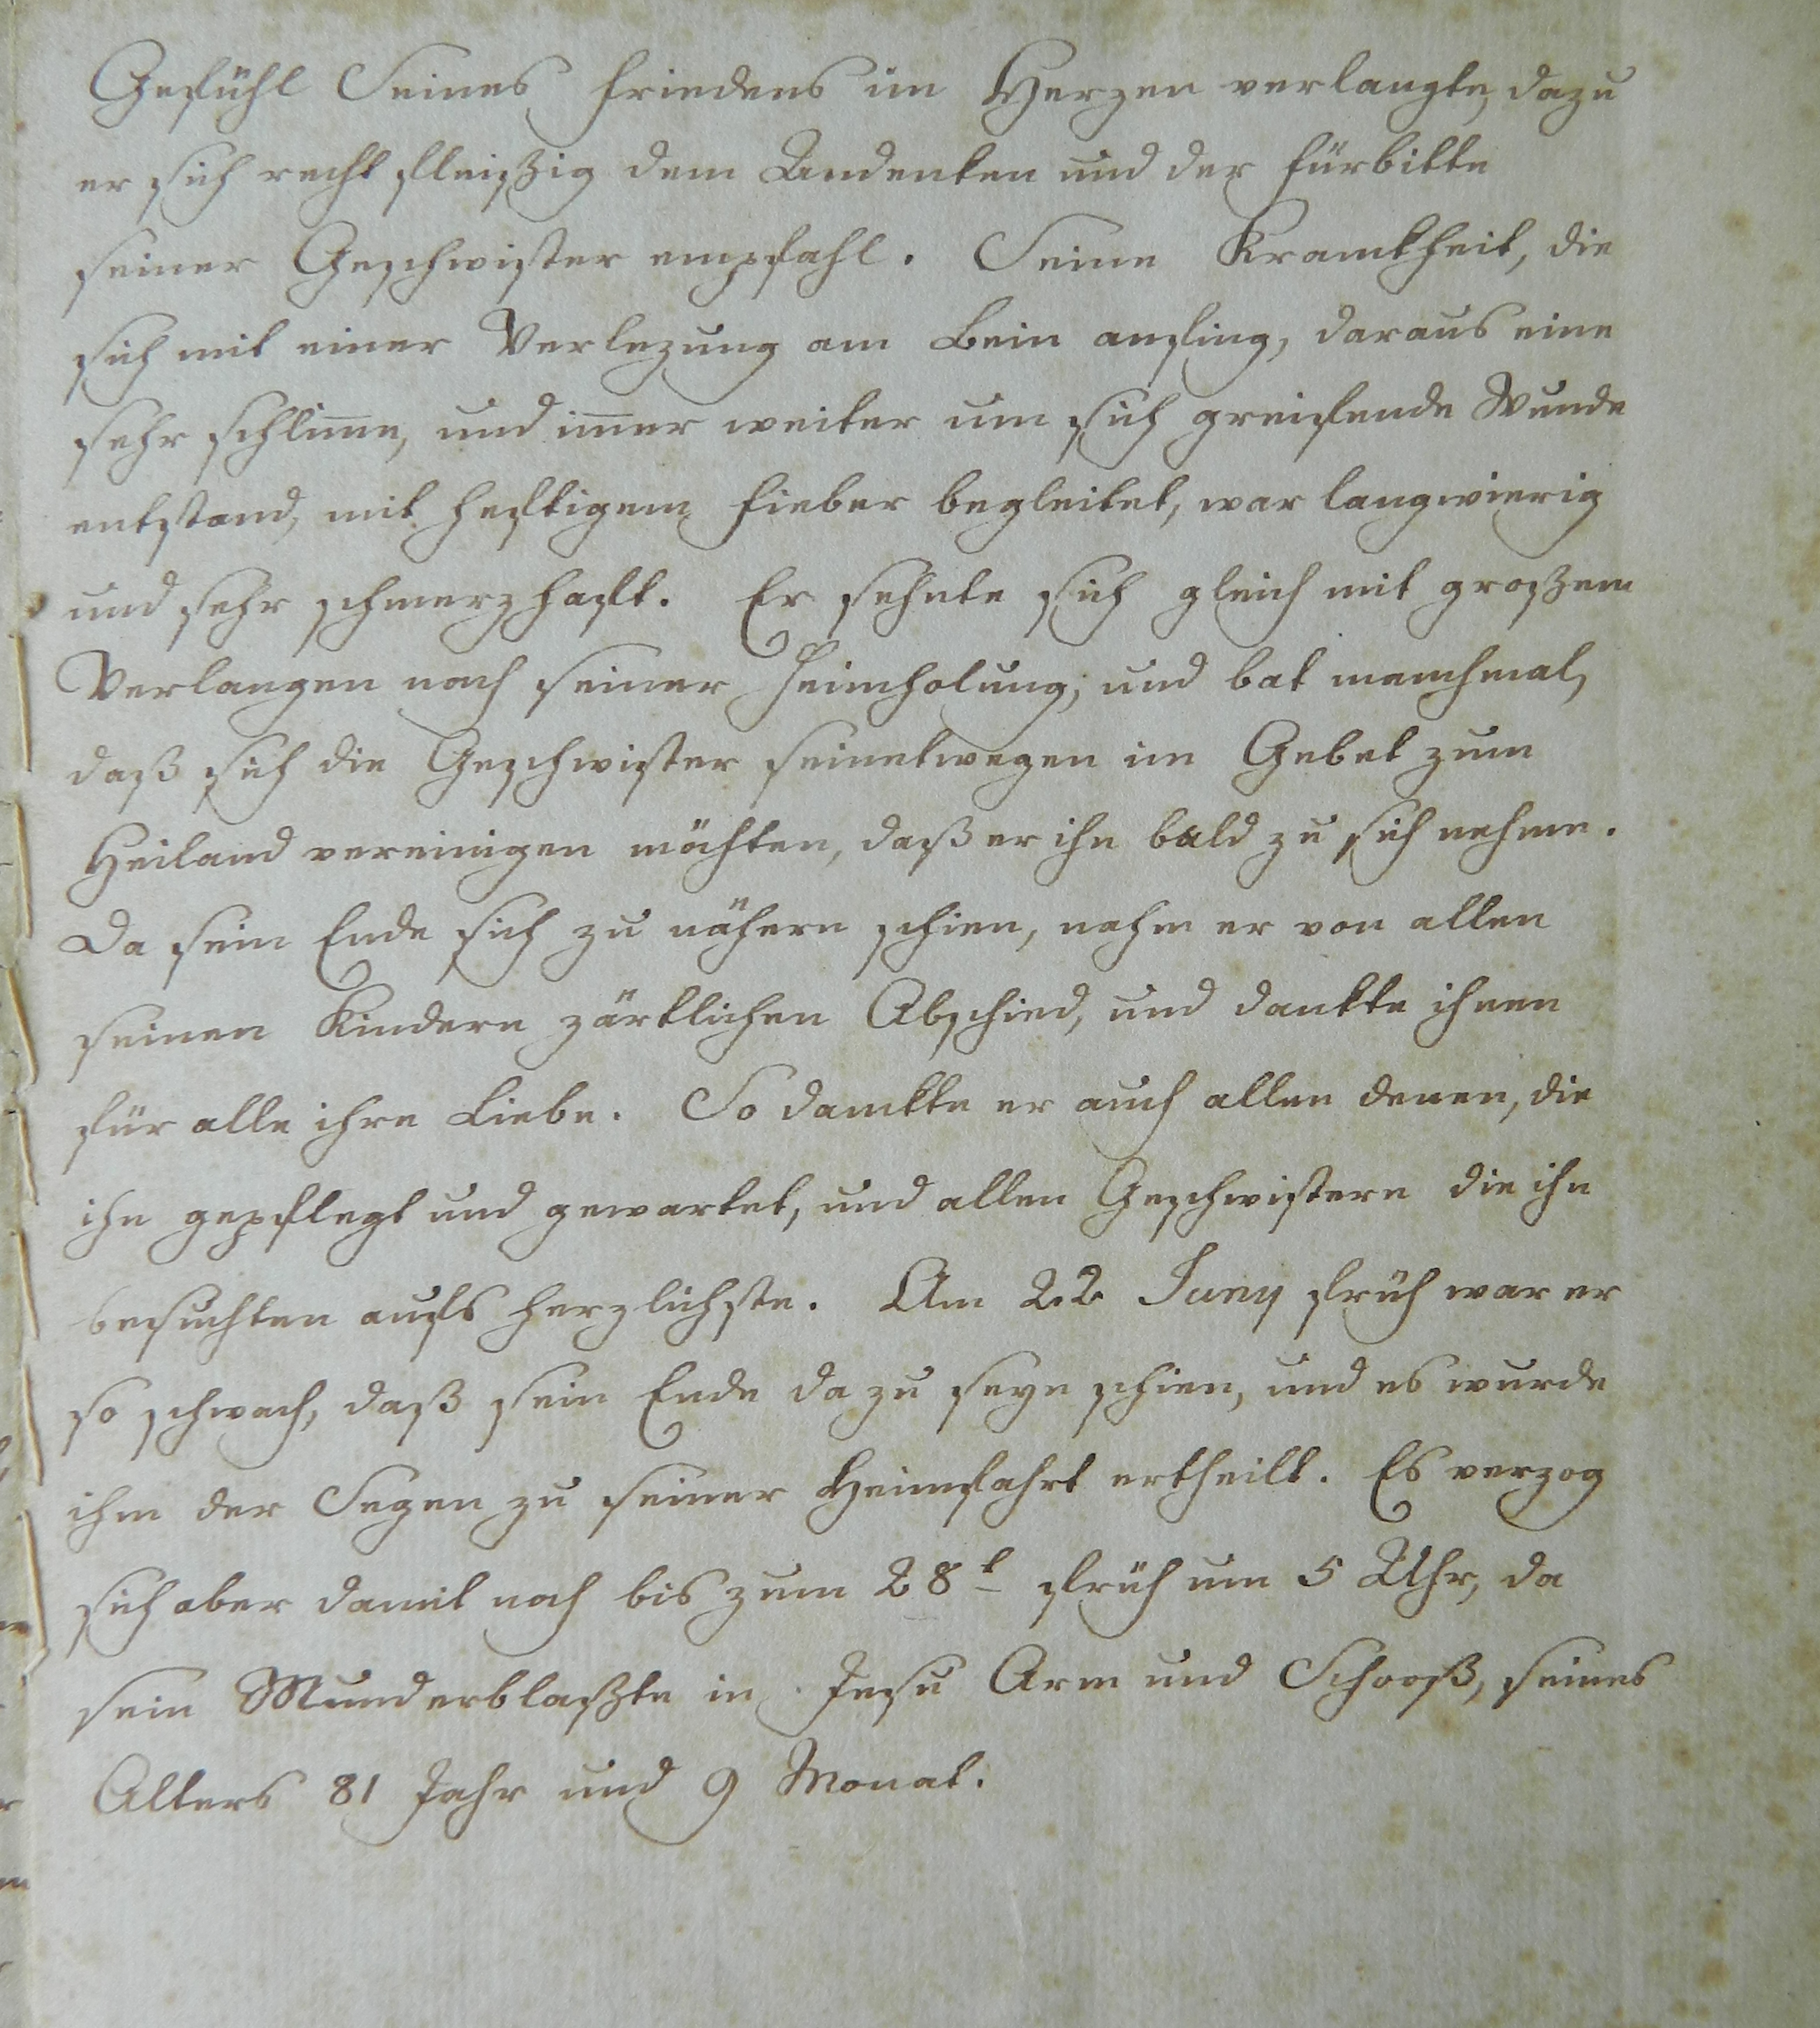 Gefühl Seines Friedens im Herzen verlangte, dazu
er sich recht fleißig dem Andenken und der Fürbitte
seiner Geschwister empfahl. Seine Kranckheit, die
sich mit einer Verlezung am Bein anfing, daraus eine
sehr schlim̅e, und im̅er weiter um sich greifende Wunde
entstand, mit heftigem Fieber begleitet, war langwierig
und sehr schmerzhaft. Er sehnte sich gleich mit großem
Verlangen nach seiner Heimholung, und bat manchmal,
daß sich die Geschwister seinetwegen im Gebet zum
Heiland vereinigen möchten, daß er ihn bald zu sich nehme.
Da sein Ende sich zu nähern schien, nahm er von allen
seinen Kindern zärtlichen Abschied, und dankte ihnen
für alle ihre Liebe. So danckte er auch allen denen, die
ihn gepflegt und gewartet, und allen Geschwistern die ihn
besuchten aufs herzlichste. Am 22 Juny früh war er
so schwach, daß sein Ende da zu seyn schien, und es wurde
ihm der Segen zu seiner Heimfahrt ertheilt. Es verzog
sich aber damit noch bis zum 28t früh um 5 Uhr, da
sein Mund erblaßte in Jesu Arm und Schooß, seines
Alters 81 Jahr und 9 Monat.